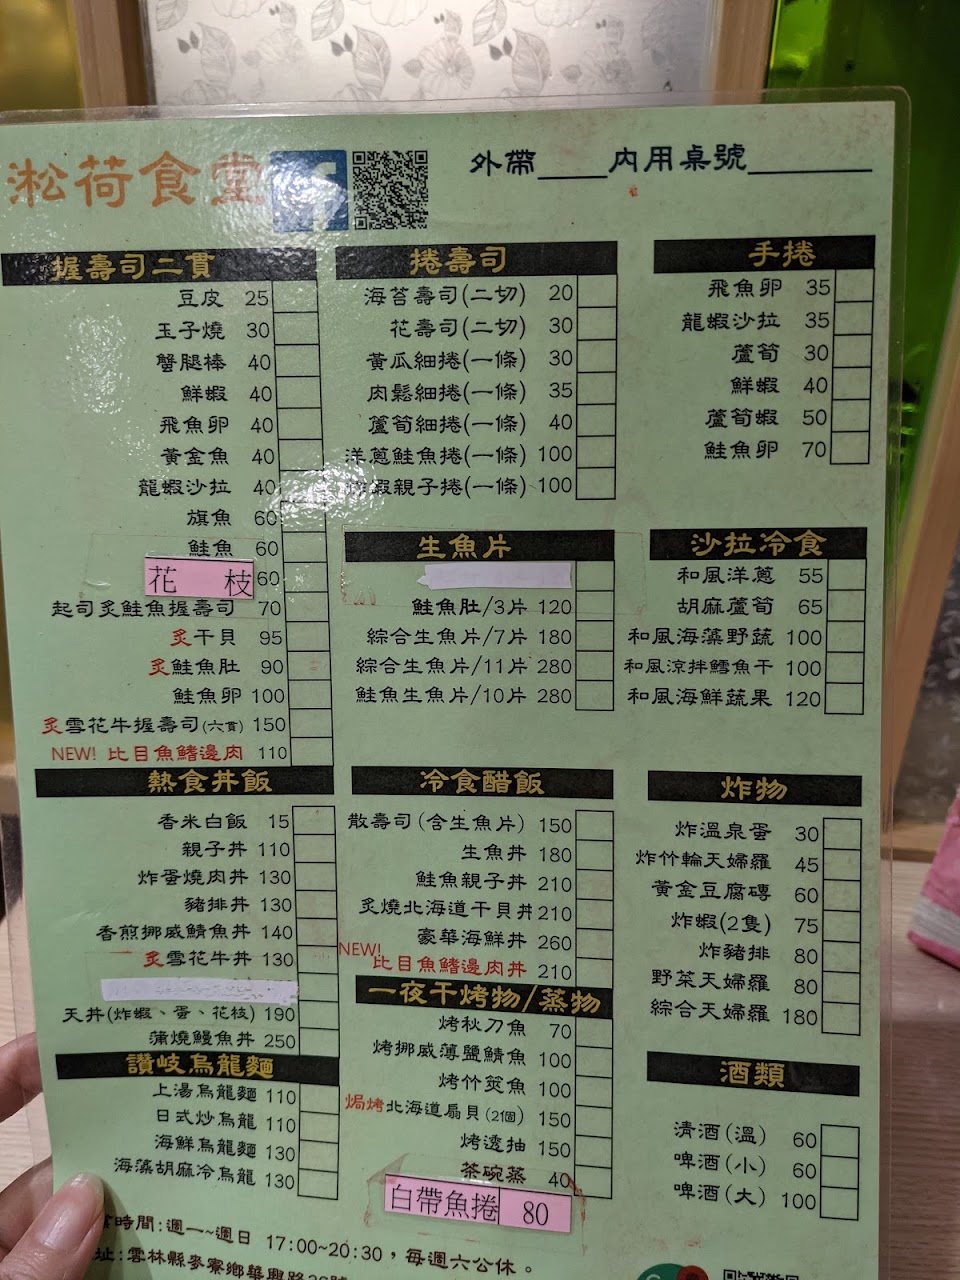 淞荷食堂
外帶____內用桌號________
握壽司二貫
豆皮 25
玉子燒 30
蟹腿棒 40
鮮蝦 40
飛魚卵 40
黃金魚 40
龍蝦沙拉 40
旗魚 60
鮭魚 60
花枝 60
起司炙鮭魚握壽司 70
炙干貝 95
炙鮭魚肚 90
鮭魚卵 100
炙雪花牛握壽司(六貫) 150
NEW! 比目魚鰭邊肉 110
捲壽司
海苔壽司(二切) 20
花壽司(二切) 30
黃瓜細捲(一條) 30
肉鬆細捲(一條) 35
蘆筍細捲(一條) 40
洋蔥鮭魚捲(一條) 100
蝦親子捲(一條) 100
手捲
飛魚卵 35
龍蝦沙拉 35
蘆筍 30
鮮蝦 40
蘆筍蝦 50
鮭魚卵 70
生魚片
鮭魚肚/3片 120
綜合生魚片/7片 180
綜合生魚片/11片 280
鮭魚生魚片/10片 280
沙拉冷食
和風洋蔥 55
胡麻蘆筍 65
和風海藻野蔬 100
和風涼拌鱈魚干 100
和風海鮮蔬果 120
熱食丼飯
香米白飯 15
親子丼 110
炸蛋燒肉丼 130
豬排丼 130
香煎挪威鯖魚丼 140
炙雪花牛丼 130
天丼(炸蝦、蛋、花枝) 190
蒲燒鰻魚丼 250
冷食醋飯
散壽司(含生魚片) 150
生魚丼 180
鮭魚親子丼 210
炙燒北海道干貝丼 210
豪華海鮮丼 260
NEW! 比目魚鰭邊肉丼 210
炸物
炸溫泉蛋 30
炸竹輪天婦羅 45
黃金豆腐磚 60
炸蝦(2隻) 75
炸豬排 80
野菜天婦羅 80
綜合天婦羅 180
讚岐烏龍麵
上湯烏龍麵 110
日式炒烏龍 110
海鮮烏龍麵 130
海藻胡麻冷烏龍 130
一夜干烤物/蒸物
烤秋刀魚 70
烤挪威薄鹽鯖魚 100
烤竹筴魚 100
焗烤北海道扇貝(2個) 150
烤透抽 150
茶碗蒸 40
白帶魚捲 80
酒類
清酒(溫) 60
啤酒(小) 60
啤酒(大) 100
時間:週一~週日 17:00~20:30,每週六公休。
址:雲林縣麥寮鄉華興路